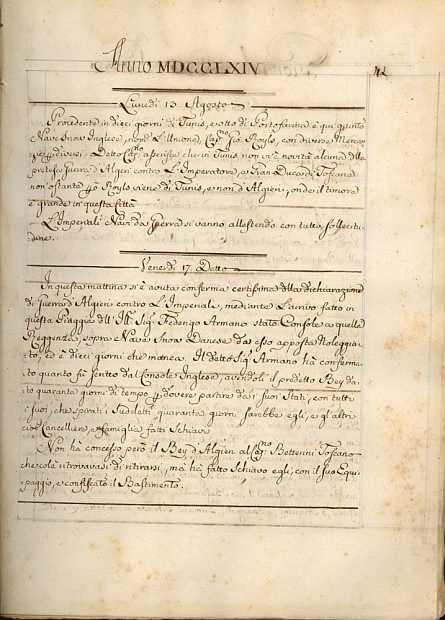 Anno MDCCLXIV
42
Lunedì 13 Agosto
Procedente in dieci giorni di Tunis, e otto di Portofarina è qui giunta
Nave Snow Inglese, nom.ª L'Unione, Cap.no Gio: Roylo, con diverse Mercan
zie diversi. Detto Cap.no asserisce che in Tunis non vi è novità alcuna della
pretesa Guerra d'Algieri contro L'Imperatore, e Gran Duca di Toscana
non ostante Roylo viene di Tunis, e non d'Algieri, onde il timore
è grande in questa Città
L'Imperiali Navi da Guerra si vanno allestendo con tutta sollecitu-
dine.
Venerdì 17. Detto
In questa mattina si è avuta conferma certissima della dichiarazione
di guerra d'Algieri contro L'Imperiale, mediante L'arrivo fatto in
questa Piaggia dell' Ill. Sig. Federigo Armano stato Console a quella
Reggenza, sopra Nave Snow Danese da esso apposta Noleggia-
to, ed è dieci giorni che manca. Il Detto Sig. Armano hà conferma-
to quanto fù scritto dal Console Inglese, avendoli il predetto Bey da-
to quaranta giorni di tempo p dovere partire da i suoi Stati, con tutti
i suoi, che spirati i Sudetti quaranta giorni sarebbe egli, e gl'altri
cioè Cancelliere, e famiglia fatti Schiavi
Non hà concesso però il Bey d'Algieri al Cap.no Betterini Toscano
che colà ritrovavasi di ritirarsi, mà hà fatto Schiavo egli, con il suo Equi-
paggio, e confiscato il Bastimento.